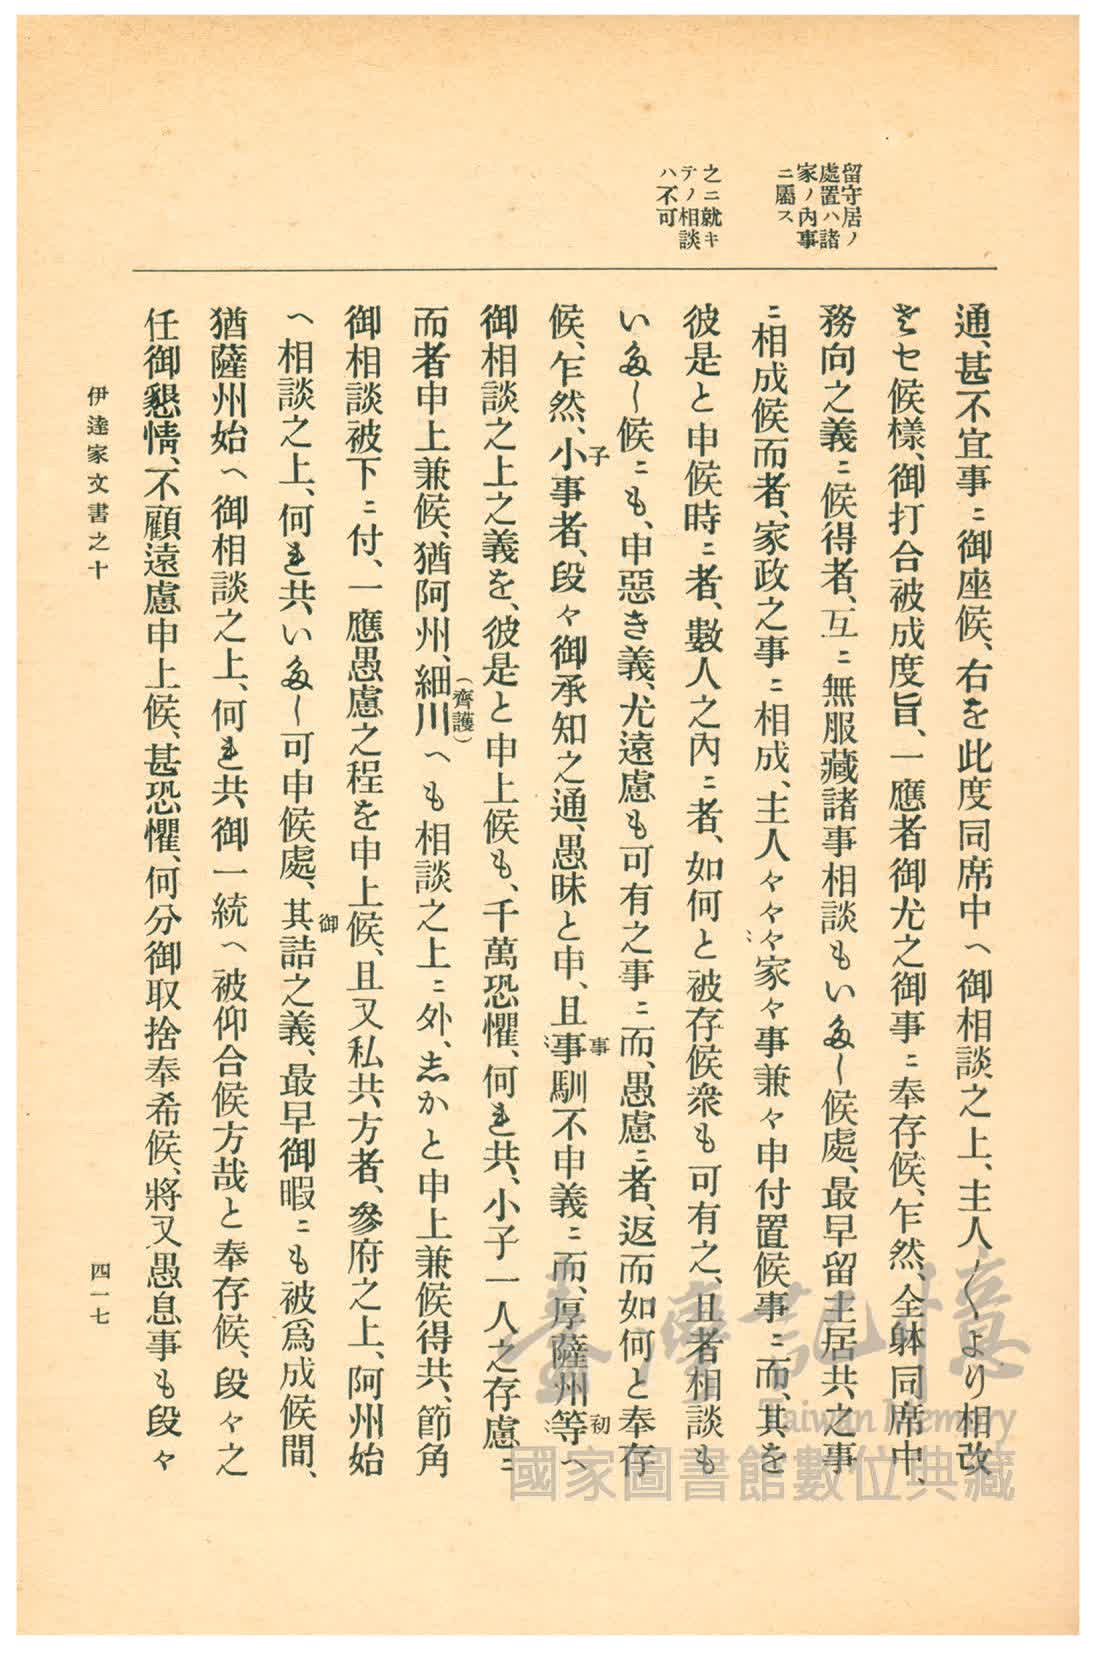 留守居ノ
處置ハ諸
家ノ内事
ニ屬ス
之ニ就キ
テノ相談
ハ不可
通、甚不宜事ニ御座候、右を此度同席中へ御相談之上、主人〱より相改
させ候樣、御打合被成度旨、一應者御尤之御事ニ奉存候、乍然、全躰同席中、
務向之義ニ候得者、互ニ無服藏諸事相談もいたし候處、最早留主居共之事
ニ相成候而者、家政之事ニ相成、主人々々々家々事兼々申付置候事ニ而、其を
彼是と申候時ニ者、數人之內ニ者、如何と被存候衆も可有之、且者相談も
いたし候ニも、申惡き義、尤遠慮も可有之事ニ而、愚慮ニ者、返而如何と奉存
候、乍然、小事者、段々御承知之通、愚昧と申、且事馴不申義ニ而、厚薩州等へ
子
事
初
御相談之上之義を、彼是と申上候も、千萬恐懼、何れ共、小子一人之存慮ニ
而者申上兼候、猶阿州、細川へも相談之上ニ外、志かと申上兼候得共、節角
（齊護）
御相談被下ニ付、一應愚慮之程を申上候、且又私共方者、參府之上、阿州始
へ相談之上、何れ共、いたし可申候處、其詰之義、最早御暇ニも被爲成候間、
御
猶薩州始へ御相談之上、何れ共御一統へ被仰合候方哉と奉存候、段々之
任御懇情、不顧遠慮申上候、甚恐懼、何分御取捨奉希候、將又愚息事も段々
伊達家文書之十
四一七
臺灣記憶
Taiwan Memory
國家圖書館數位典藏